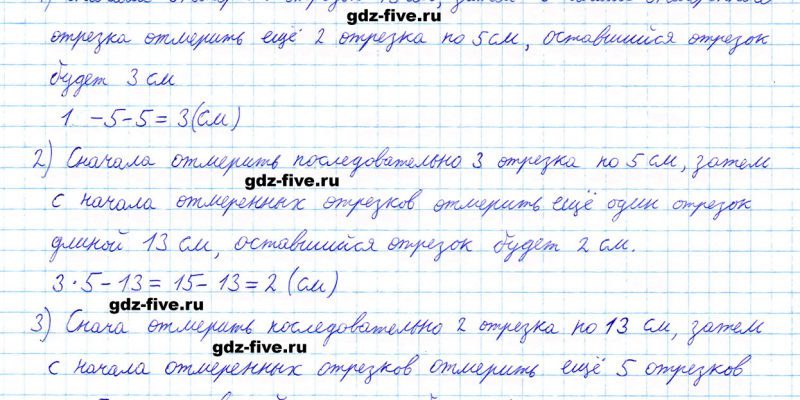 gdz-five.ru
отрезка отмерить ещё 2 отрезка по 5 см, оставшийся отрезок
будет 3 см
1 -5-5=3(см)
2) Сначала отмерить последовательно 3 отрезка по 5 см, затем
gdz-five.ru
с начала отмеренных отрезков отмерить ещё один отрезок
длиной 13 см, оставшийся отрезок будет 2 см.
3·5-13=15-13=2 (см)
gdz-five.ru
3) Снача отмерить последовательно 2 отрезка по 13 см, затем
gdz-five.ru
с начала отмеренных отрезков отмерить ещё 5 отрезков